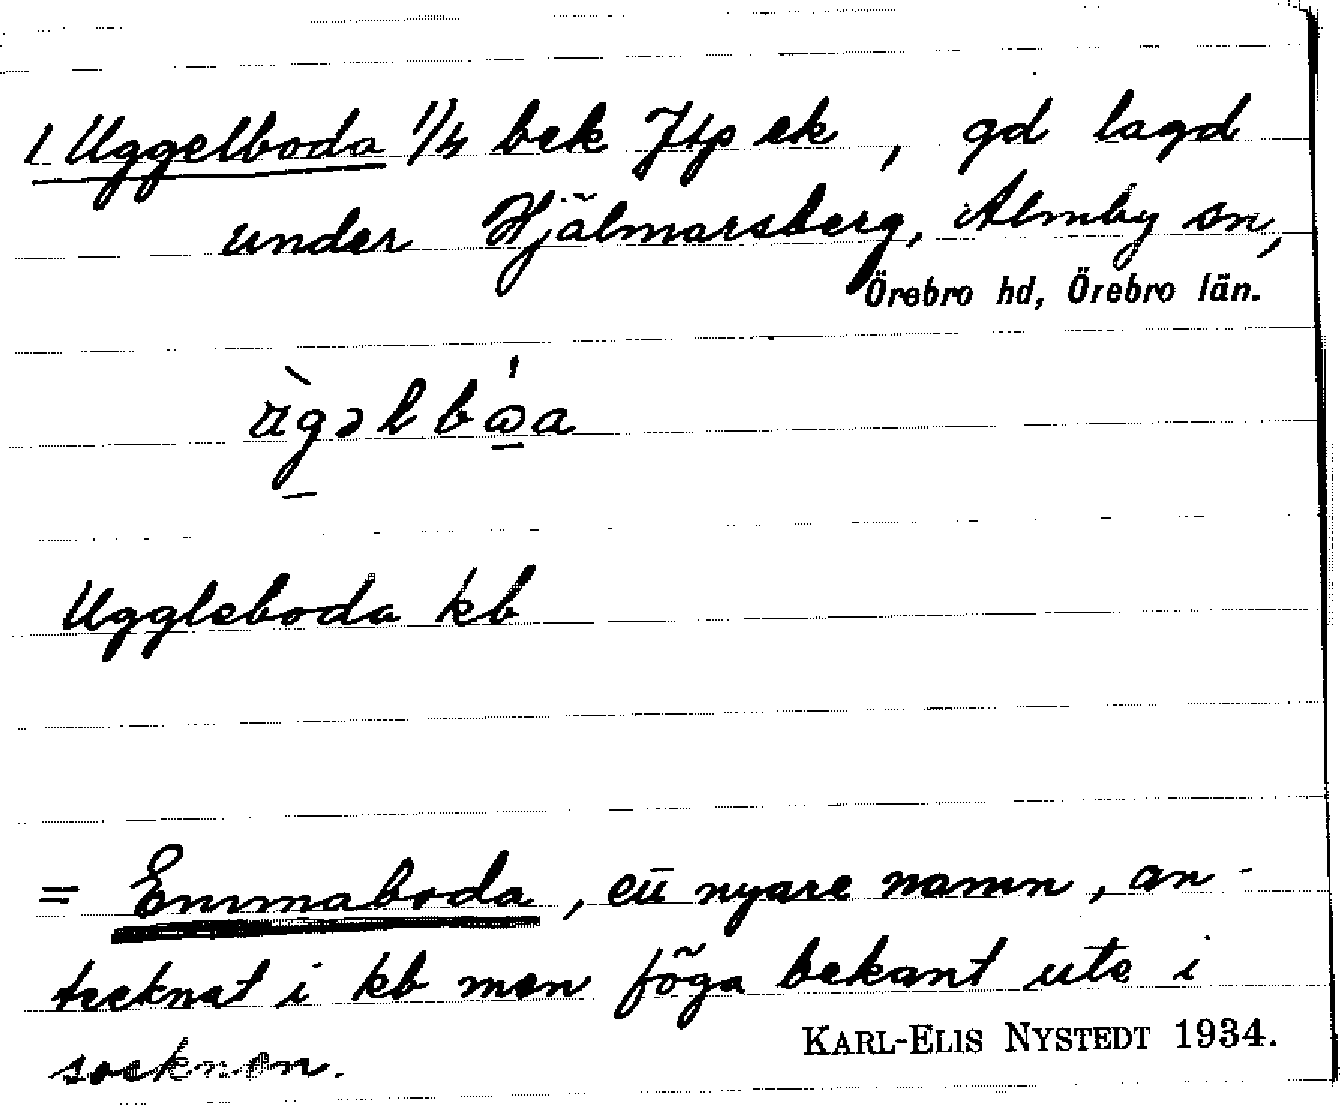 1 Uggelboda 1/4 bek Jtp ek, gd lagd
under Hjälmarsberg, Almby sn,
Örebro hd, Örebro län.
Uggleboda kb
= Emmaboda, ett nyare namn, an-
tecknat i kb men föga bekant ute i
socknen.
KARL-ELIS NYSTEDT 1934.